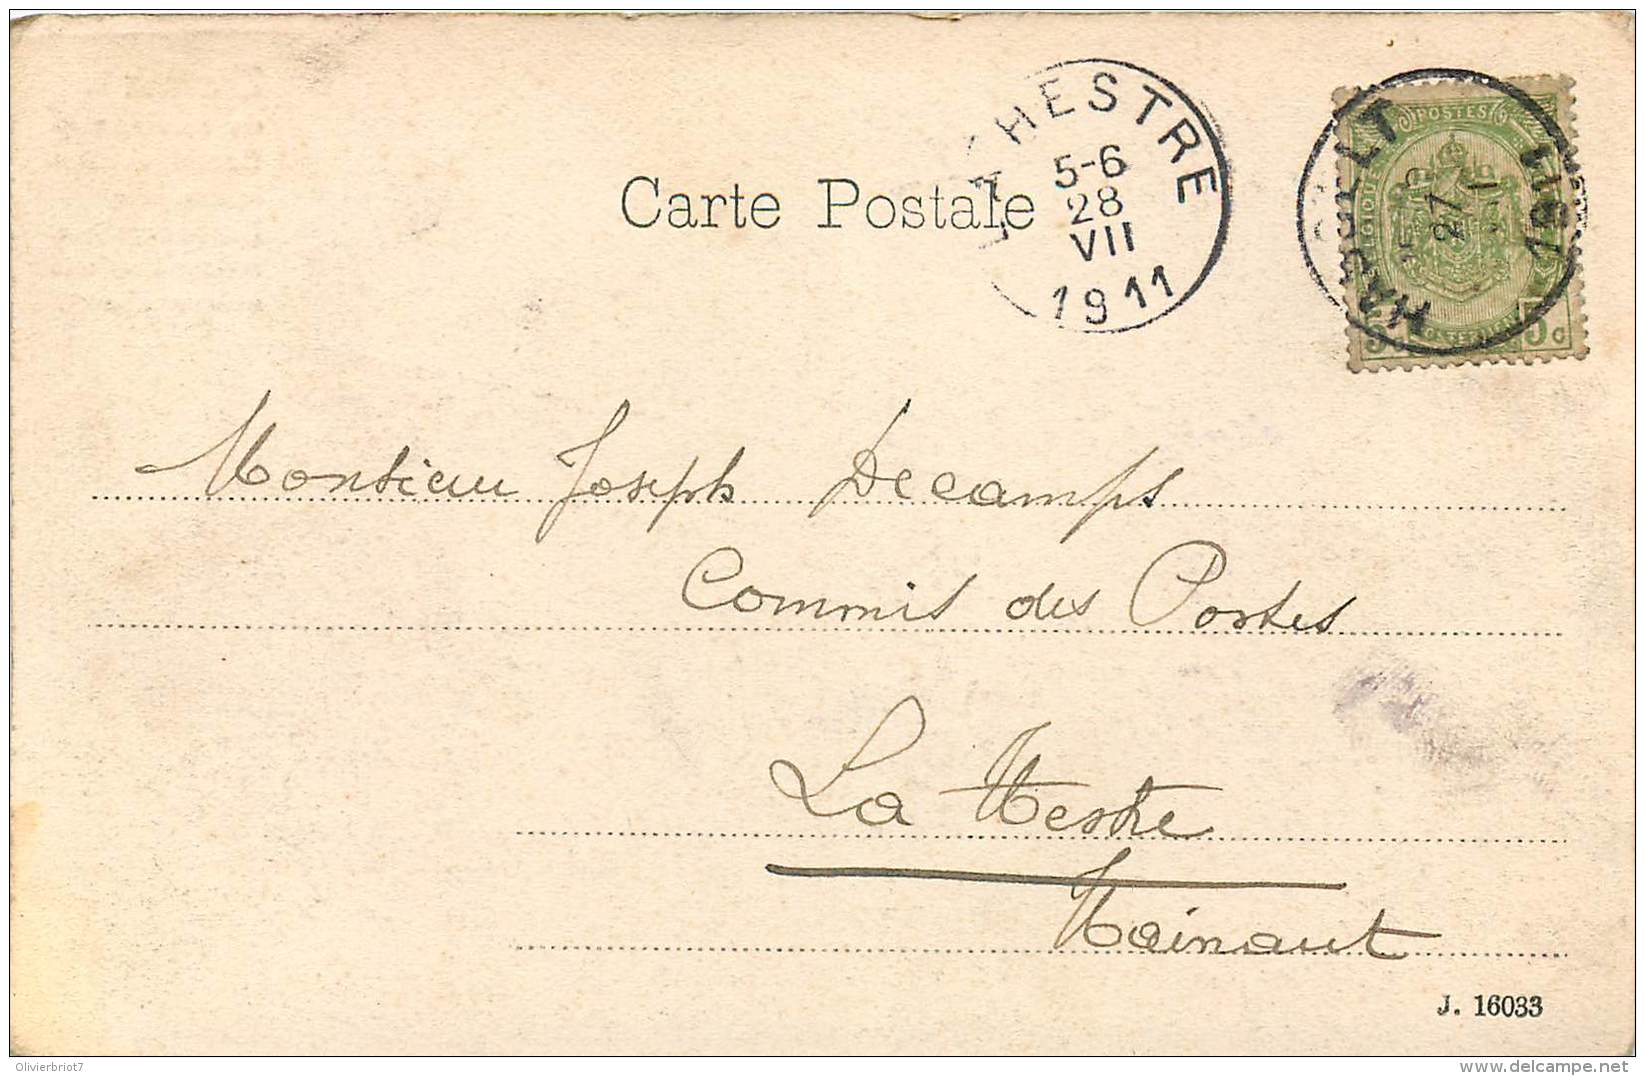 LA HESTRE
5-6
28
VII
1911
HASSELT
27
1911
POSTES
5c 5c
Carte Postale
Monsieur Joseph Decamps
Commis des Postes
La Hestre
Hainaut
J. 16033
Olivierbriot7
delcampe.net